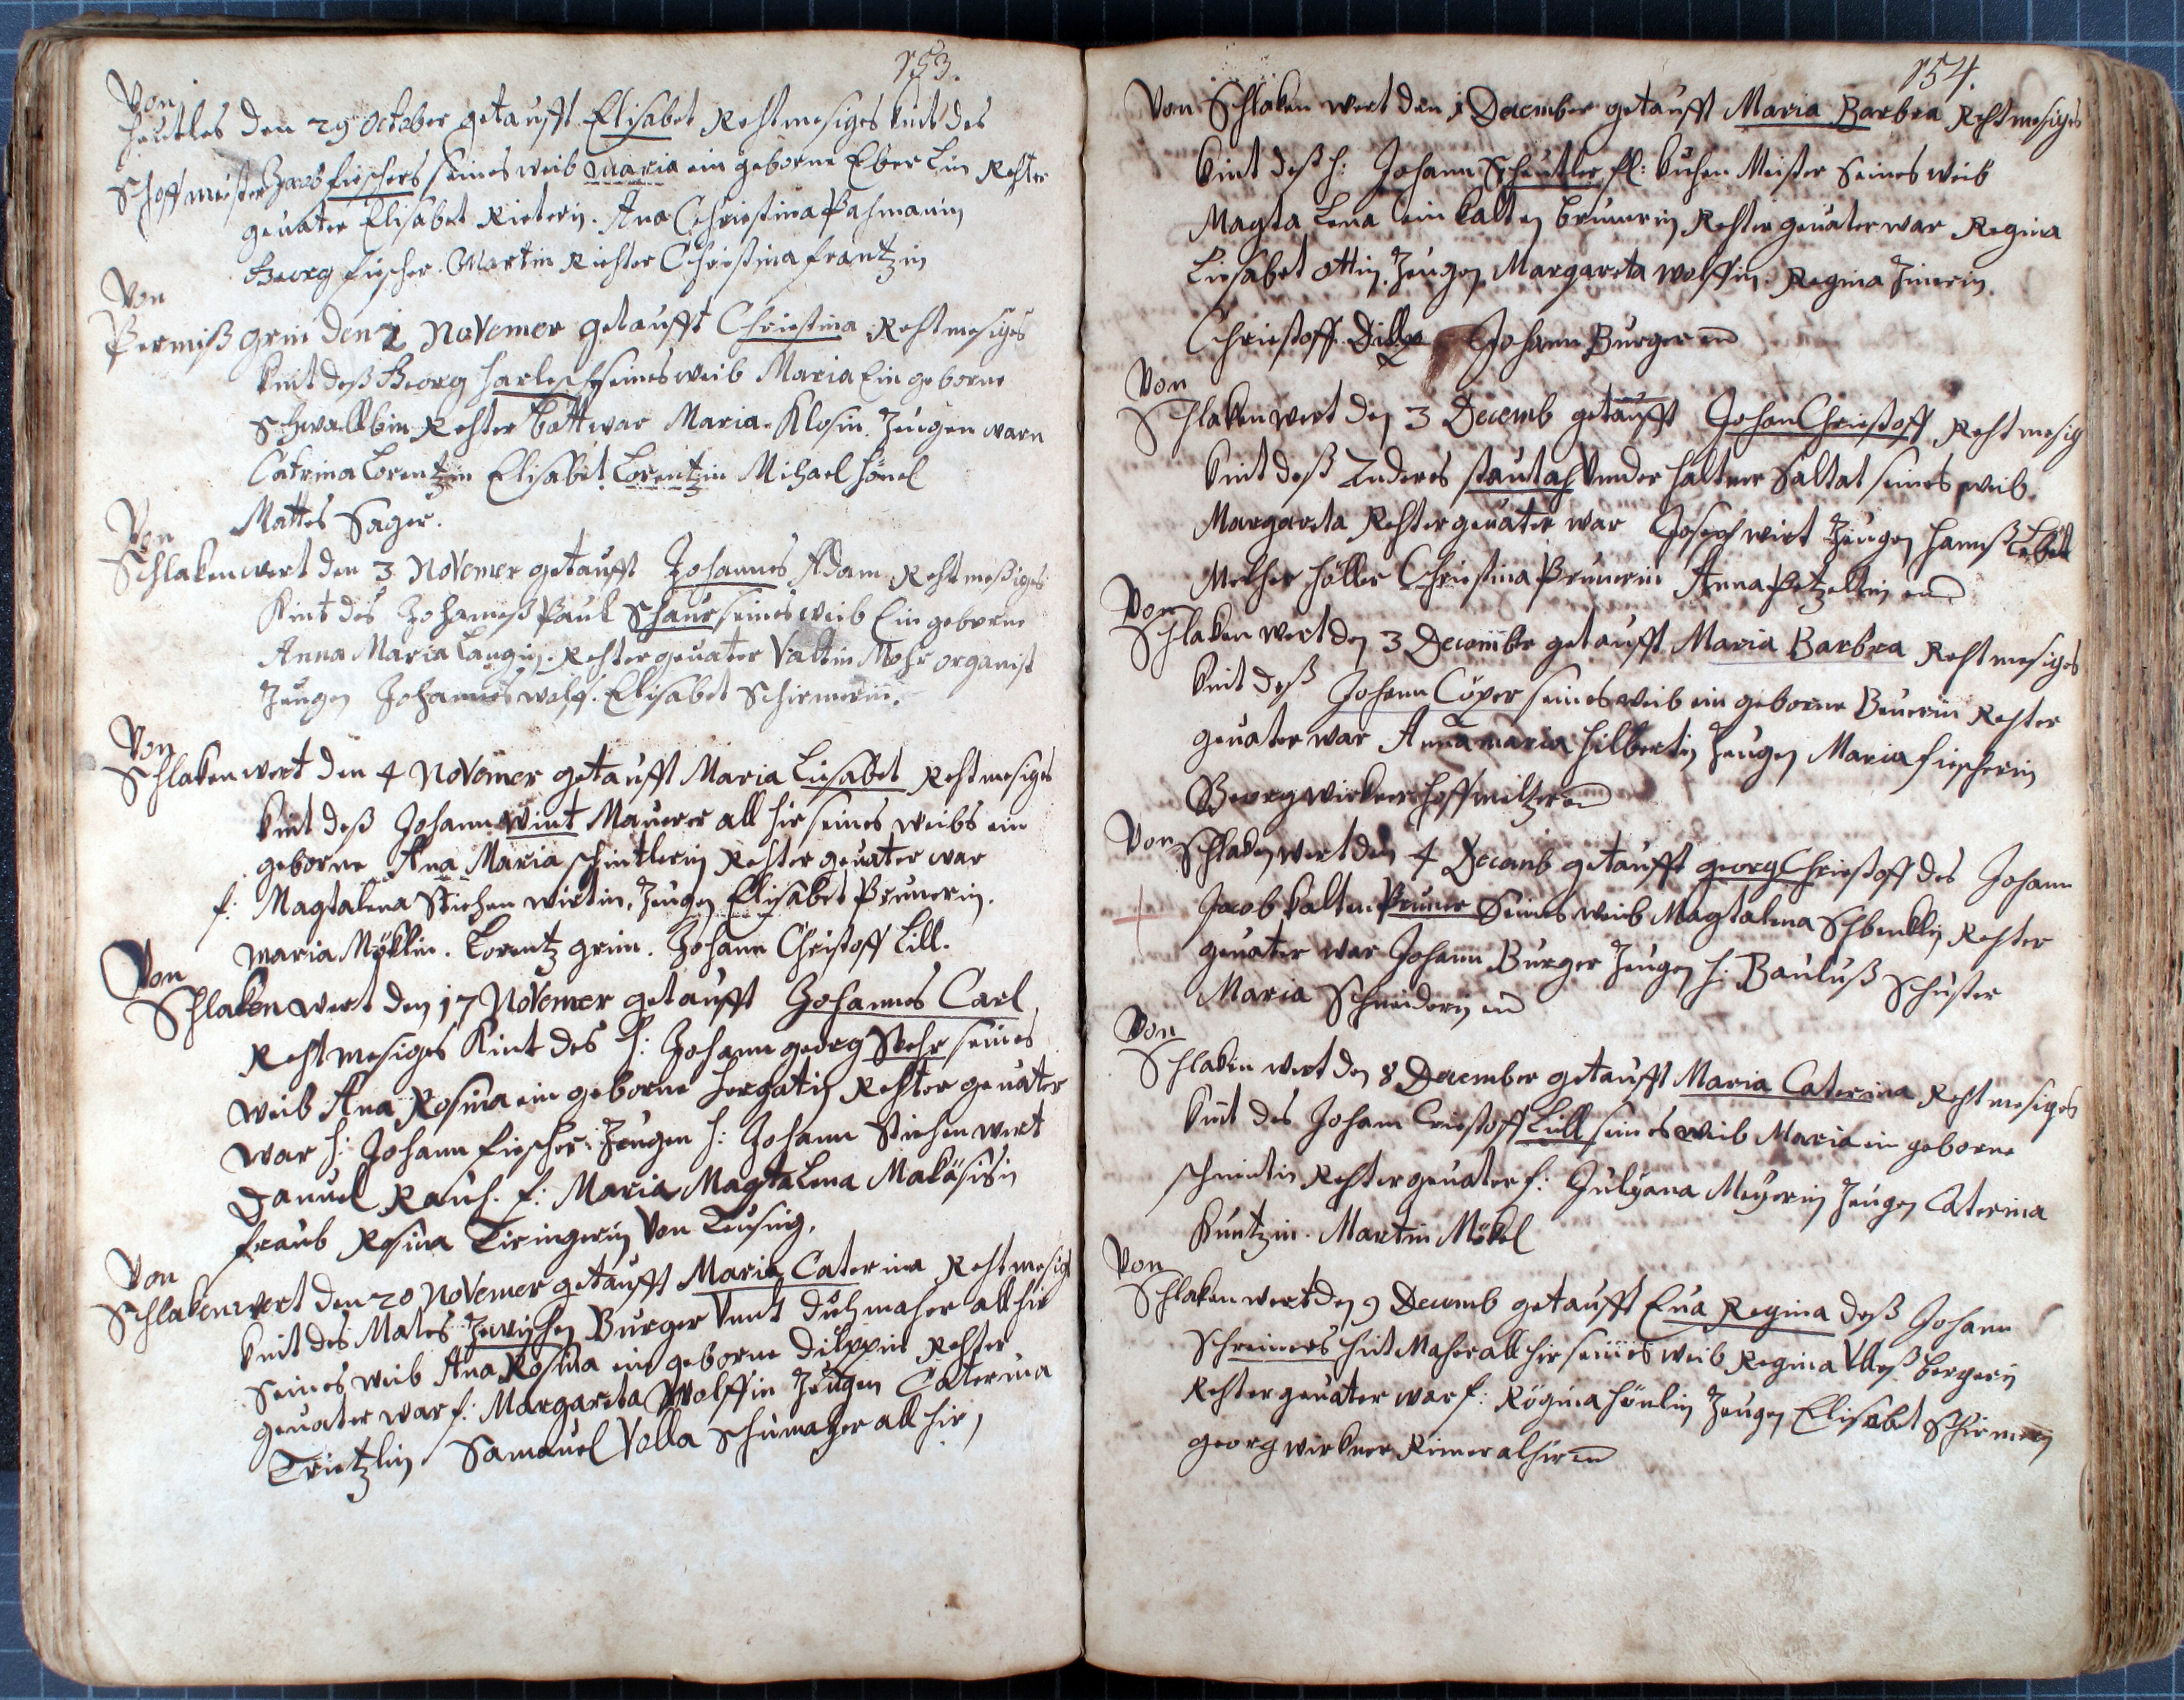 153.
Von
Heutles den 29 October getaufft Elisabet Rechtmesiges kint des
Schoffmeister Jacob fieschers seines weib maria ein geborne Eberlin Rechter
gevater Elisabet Rieterin. Ana Chriestina Pachmanin
Georg fiescher. Martin Richter Chriestina frantzin
Von
Permiß grin den 2 Novemer getaufft Chriestina Rechtmesiges
kint deß Georg harlesch seines weib Maria Ein geborne
Schwallbin Rechter bott war Maria Klosin. Zeugen warn
Catrina Lorentzin Elisabet Lorentzin Michael hönel
Mattes Sager.
Von
Schlakenwert den 3 Novemer getaufft Johannes Adam Rechtmeßiges
Kint des Johanneß Paul Schaur seines weib Ein geborne
Anna Maria Langin. Rechter gevater Valtin Mohr organist
Zeugen Johannes wolf. Elisabet Schirmerin.
Von
Schlakenwert den 4 Novemer getaufft Maria Liesabet Rechtmesiges
kint deß Johann wint Maurer all hir seines weibs ein
geborne Ana Maria schintlerin Rechter gevater war
f: Magtalena Kichen wirtin, Zeugen Elisabet Prunerin.
Maria Möklin. Lorentz grim. Johann Christoff Lill.
Von
Schlakenwert den 17 Novemer getaufft Johannes Carl
Rechtmesiges Kint des h: Johann georg Stehr seines
weib Ana Rosina ein geborne hergatin Rechter gevater
war h: Johann fiescher. Zeugen h: Johann Kichen wirt
Danuel Rauch. f: Maria Magtalena
fraub Rosina Tiringerin Von Teusing.
Von
Schlakenwert den 20 Novemer getaufft Maria Caterina Rechtmesig
kint des Mates Zewischen Burger Vnnt Duchmacher all hir
Seines weib Ana Rosina ein geborne Dilppin Rechter
gevater war f: Margareta Wolffin Zeugen Caterina
Trietzlin Samauel Volla Schumacher all hir
154.
Von Schlaken wert den 1 December getaufft Maria Barbra Rechtmesiges
kint deß h: Johann Scheutler fl: kuchen Meister seines weib
Magta Lena ein kalten brunerin Rechter gevater war Regina
Liesabet ottin. Zeugen Margareta wolffin. Regina Zinerin
Chriestoff Dillp Johann Burger
Von
Schlakenwert den 3 Decemb getaufft Johan Chriestoff Rechtmesig
kint deß Anderes stautach Vnder haltner Saltat seines weib
Margareta Rechter gevater war Joseph wirt Zeugen hannß Lebel
Melcher höller Chriestina Prunerin Anna Petzeltin
Von
Schlaken wert den 3 December getaufft Maria Barbra Rechtmesiges
kint deß Johann Cöper seines weib ein geborne Beuerin Rechter
gevater war Annamaria hilbertin Zeugen Maria fiescherin
Georg wirkner hoffmeltzer
Von
Schlaken wert den 4 Decemb getaufft georg Chriestoff des Johann
Jacob kalten Pruner Seines weib Magtalena Rechter
gevater war Johann Burger Zeugen h: Bauluß Schuster
Maria Schneiderin
Von
Schlaken wert den 8 December getaufft Maria Caterina Rechtmesiges
kint des Johann Criestoff Lill seines weib Maria ein geborne
schmitin Rechter gevater f: Julyana Meyerin Zeugen Caterina
Kuntzin. Martin Mökel
Von
Schlaken wert den 9 Decemb getaufft Eva Regina deß Johann
Schreiners hutmacher all hir seines weib Regina Vlleß bergerin
Rechter gevater war f: Rögina hönlin Zeugen Elisabet Schirmerin
georg wirkner Rimer alhir